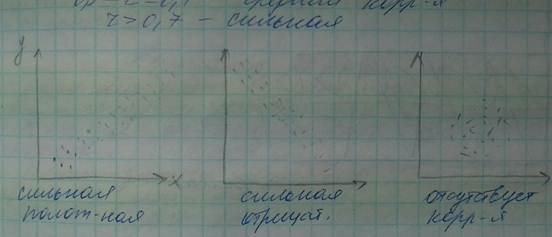 средняя корр-я
r > 0,7 – сильная
y
x
сильная
полож-ная
сильная
отрицат.
отсутствует
корр-я